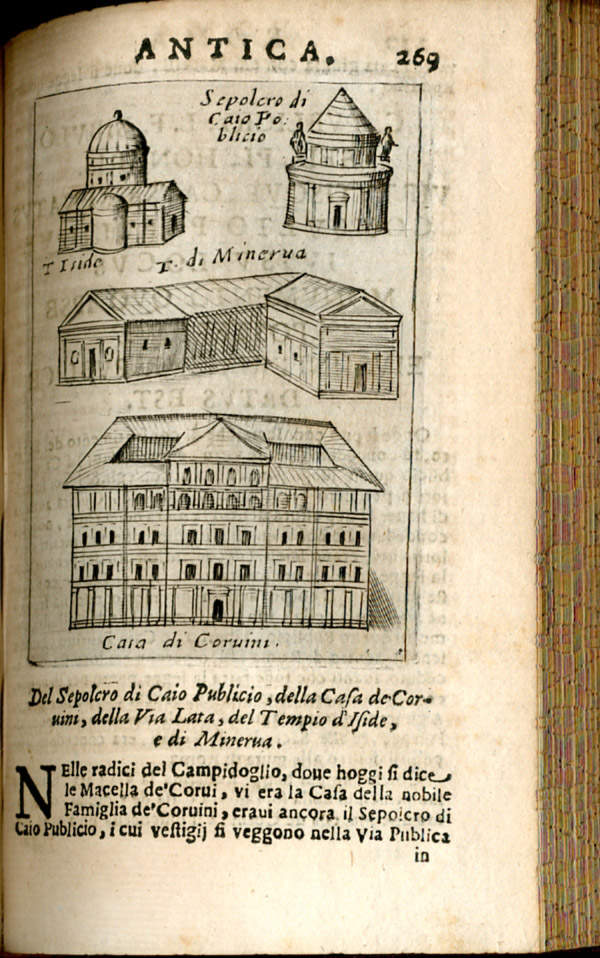 ANTICA. 269
Sepolcro di
Caio Po:
blicio
T Iside
T. di Minerua
Casa di Coruini.
Del Sepolcro di Caio Publicio, della Casa de Cor-
uini, della Via Lata, del Tempio d'Iside,
e di Minerva.
NElle radici del Campidoglio, doue hoggi si dice
le Macella de'Corui, vi era la Casa della nobile
Famiglia de'Coruini, eraui ancora il Sepolcro di
Caio Publicio, i cui vestigij si veggono nella Via Publica
in